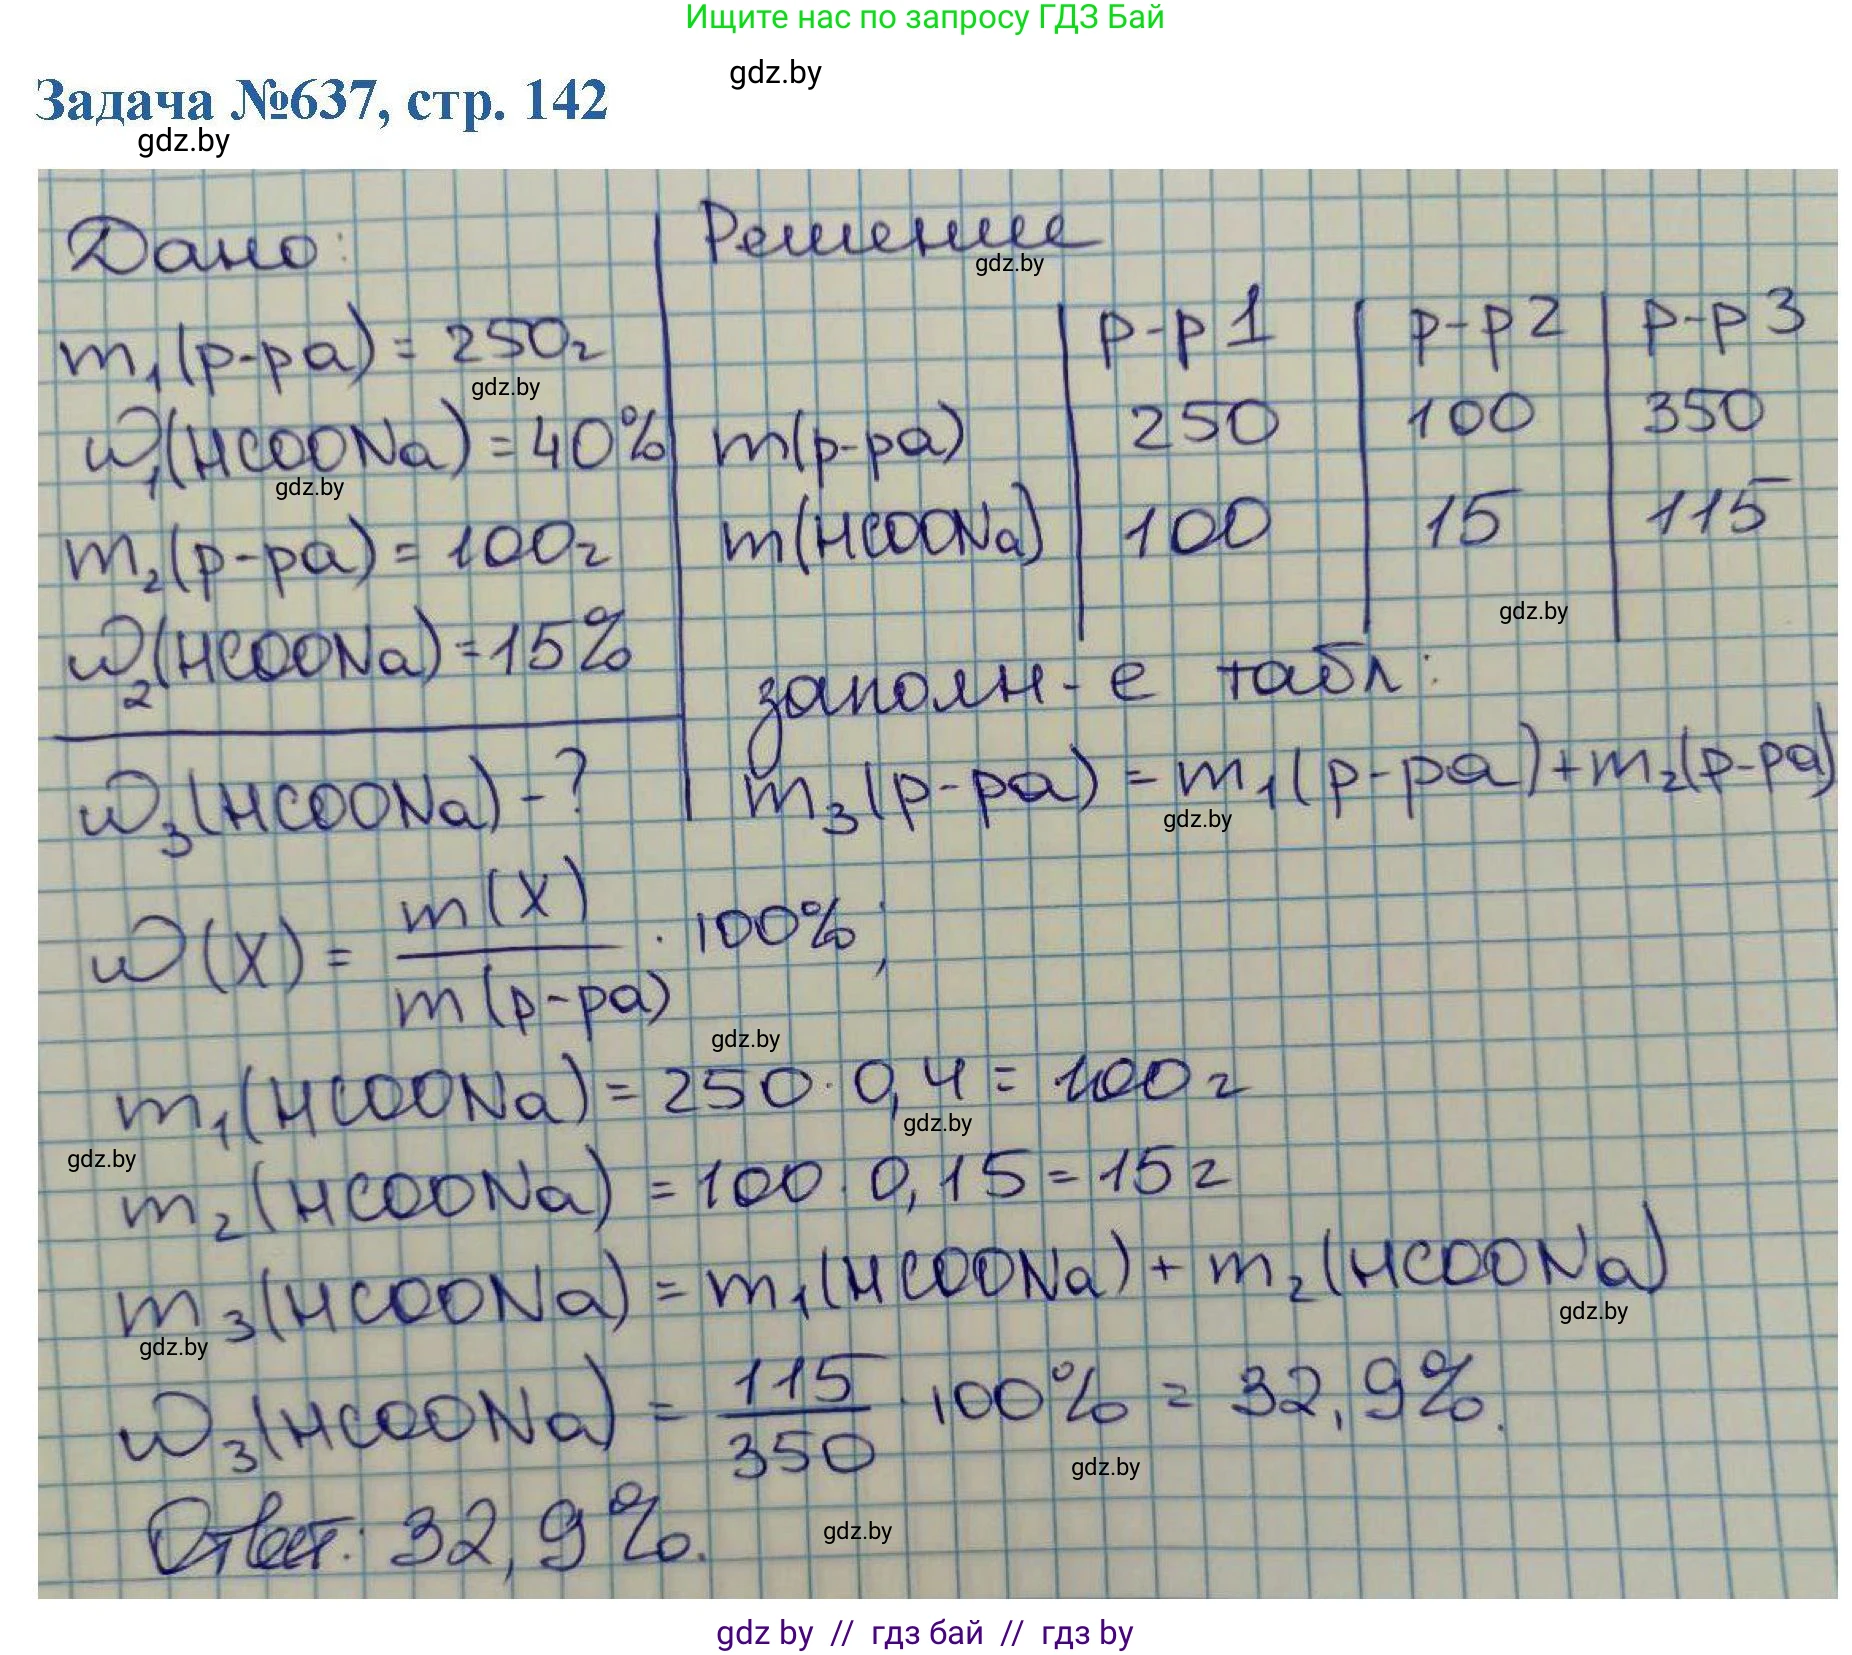 Ищите нас по запросу ГДЗ Бай
gdz.by
Задача №637, стр. 142
gdz.by
Дано:
m₁(р-ра) = 250г
gdz.by
w₁(HCOONa) = 40%
gdz.by
m₂(р-ра) = 100г
w₂(HCOONa) = 15%
w₃(HCOONa) - ?
Решение
gdz.by
р-р 1 р-р 2 р-р 3
m(р-ра) 250 100 350
m(HCOONa) 100 15 115
gdz.by
заполн-е табл:
m₃(р-ра) = m₁(р-ра) + m₂(р-ра)
gdz.by
w(X) = m(X) / m(р-ра) · 100%;
gdz.by
m₁(HCOONa) = 250 · 0,4 = 100г
gdz.by
gdz.by
m₂(HCOONa) = 100 · 0,15 = 15г
m₃(HCOONa) = m₁(HCOONa) + m₂(HCOONa)
gdz.by
gdz.by
w₃(HCOONa) = 115 / 350 · 100% = 32,9%.
gdz.by
Ответ: 32,9%.
gdz.by
gdz by // гдз бай // гдз by